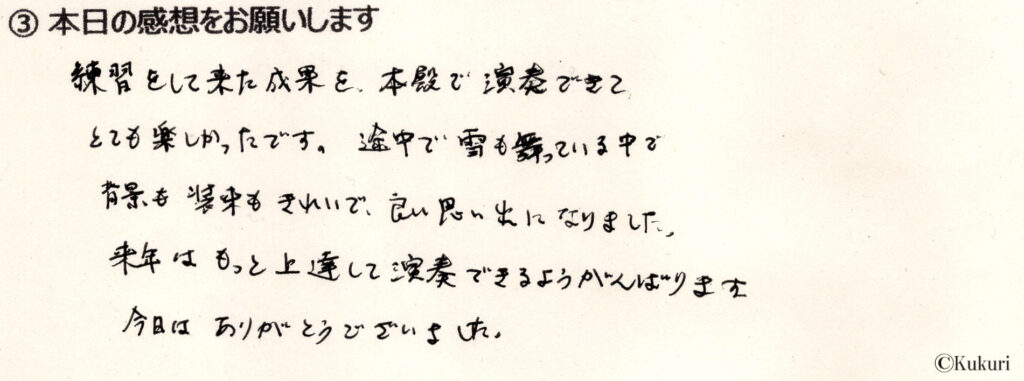 ③ 本日の感想をお願いします
練習をして来た成果を、本殿で演奏できて
とても楽しかったです。途中で雪も舞っている中で
背景も装束もきれいで、良い思い出になりました。
来年はもっと上達して演奏できるようがんばります
今日はありがとうございました。
©Kukuri